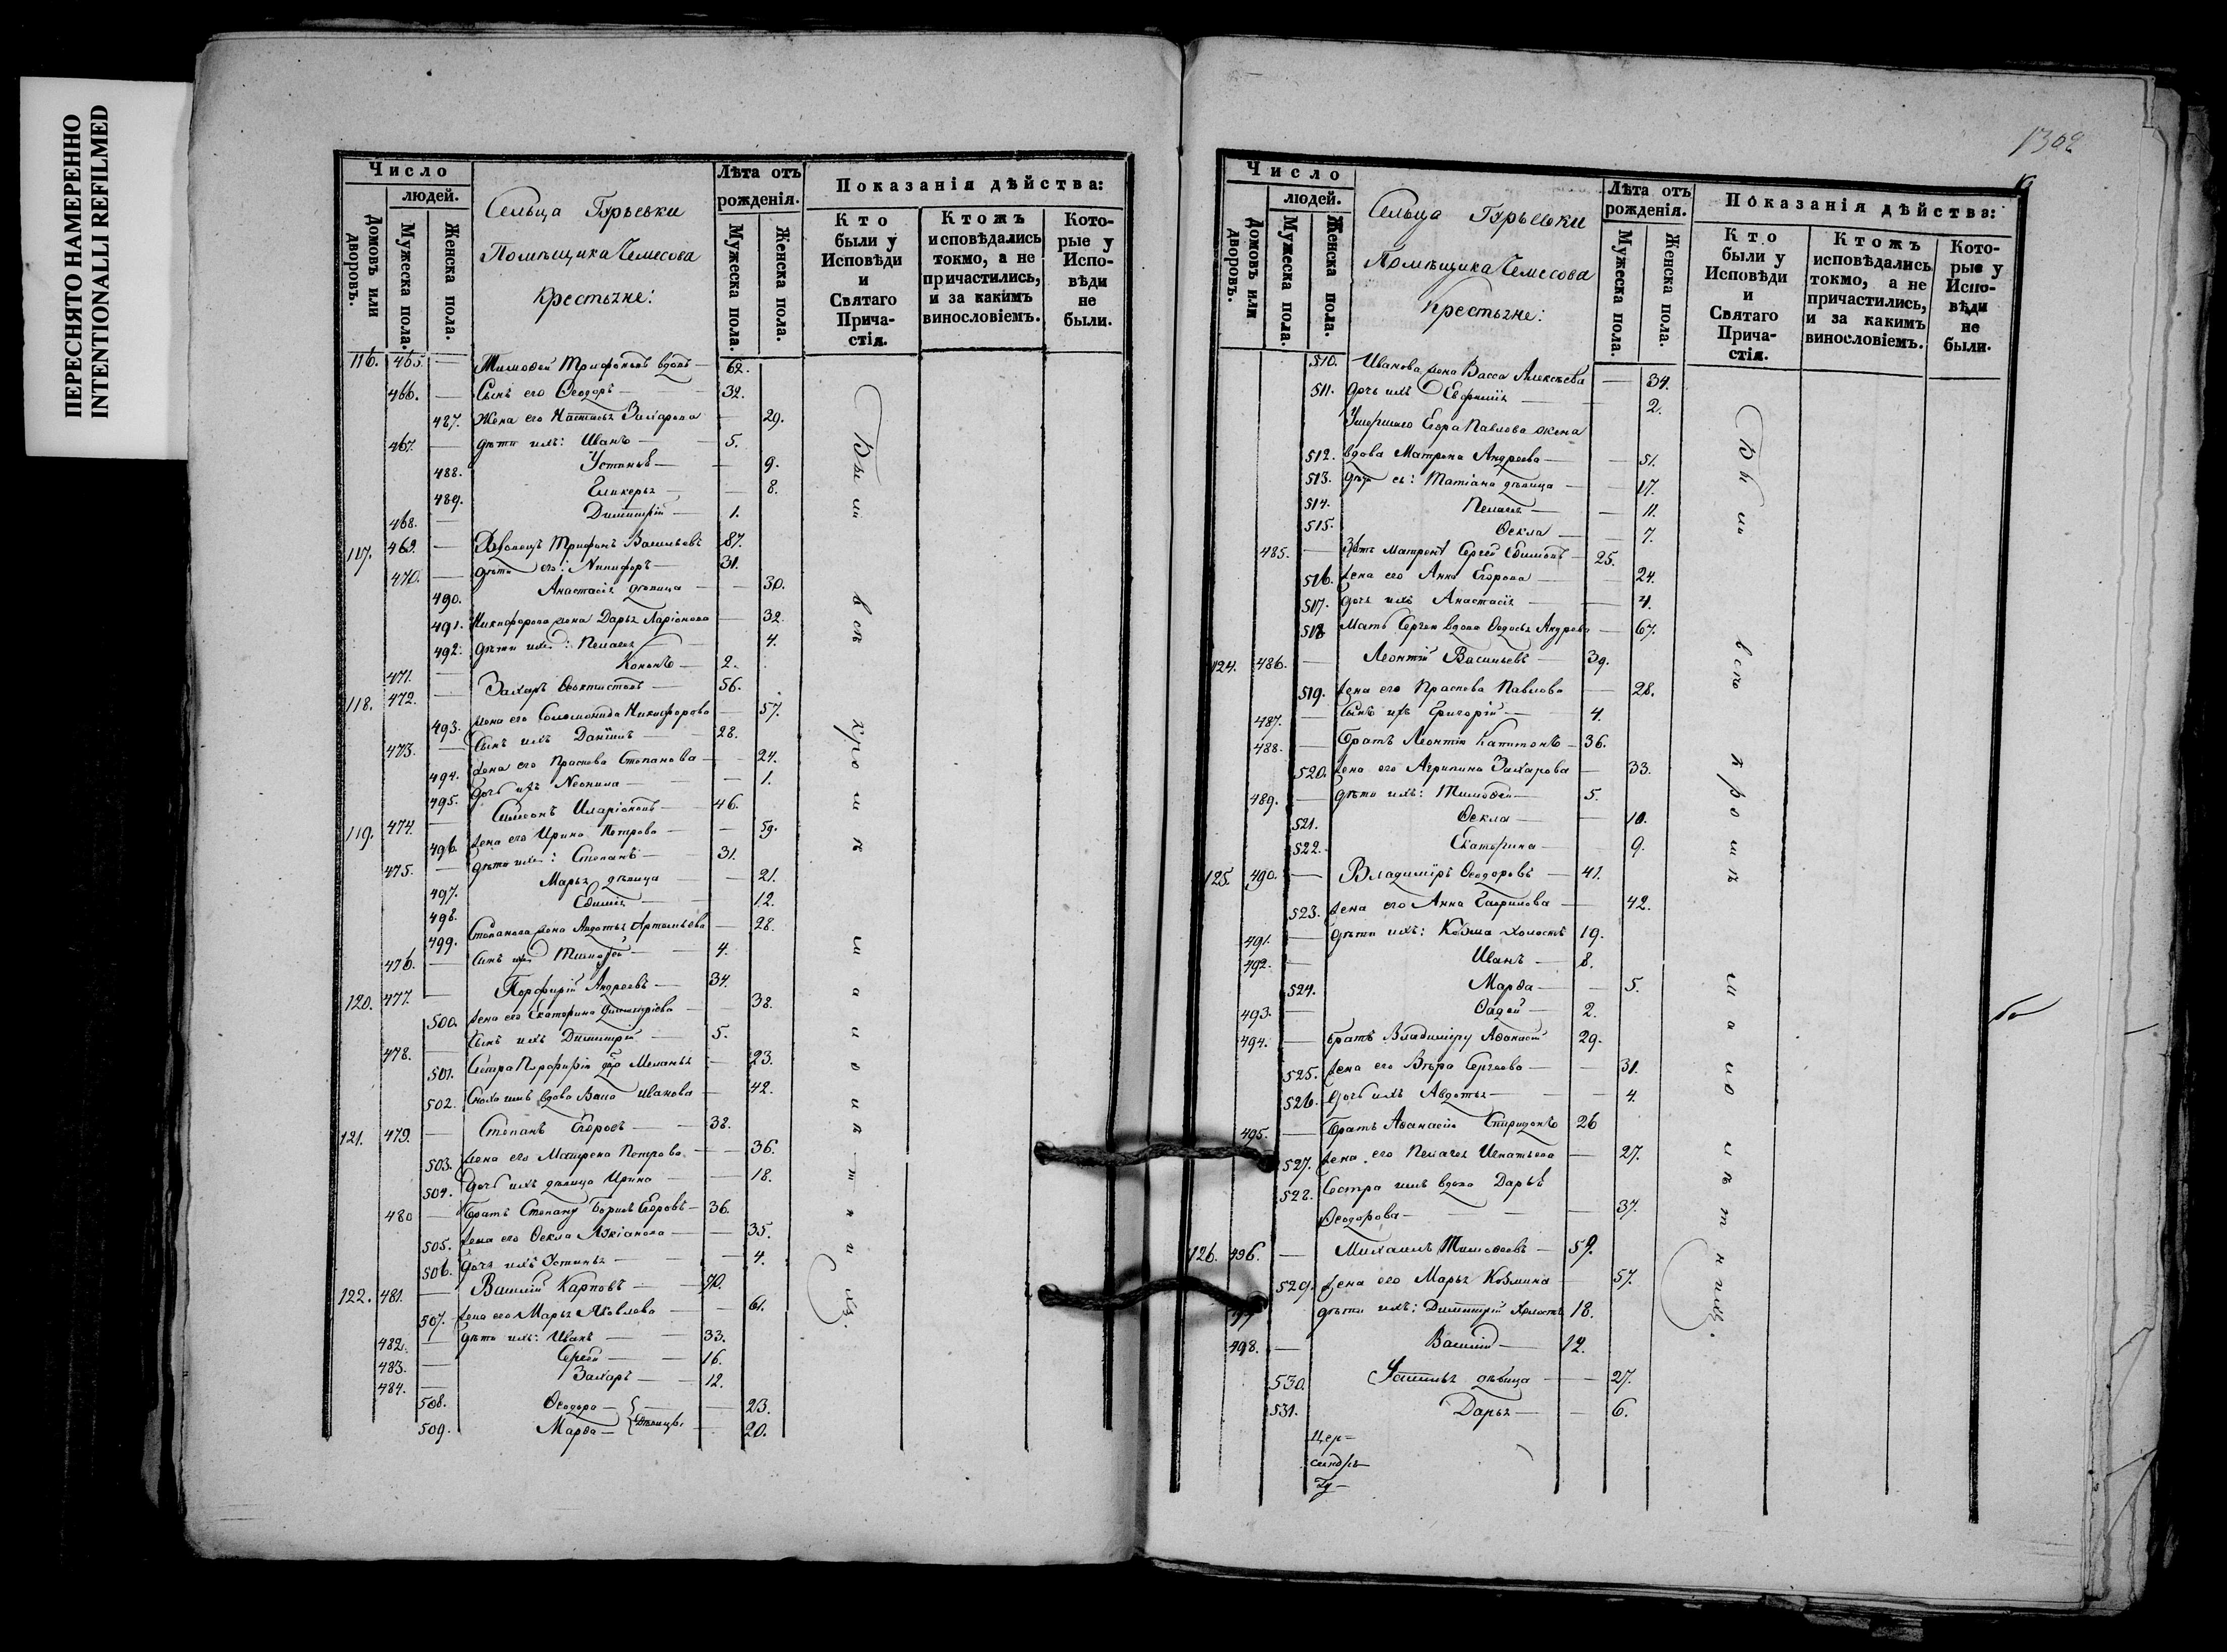 ПЕРЕСНЯТО НАМЕРЕННО
INTENTIONALLI REFILMED
Число
людей.
Домовъ или дворовъ.
Мужеска пола.
Женска пола.
Сельца Гурьевки
Помѣщика Чемесова
Крестьяне:
Лѣта отъ рожденія.
Мужеска пола.
Женска пола.
Показанія дѣйства:
Кто были у Исповѣди и Святаго Прича-стія.
Ктожъ исповѣдались токмо, а не причастились, и за какимъ винословіемъ.
Кото-рые у Испо-вѣди не были.
116. 465. — Тимоѳей Трифоновъ вдовъ — 62.
466. — Сынъ его Ѳеодоръ — 32.
487. Жена его Наталья Захарова — 29.
467. — дѣти ихъ: Иванъ — 5.
488. — 9.
489. Гликерья — 8.
468. — Димитрій — 1.
117. 469. — Вдовецъ Трифонъ Васильевъ 87.
470. — дѣти его: Никифоръ — 31.
490. Анастасія дѣвица — 30.
491. Никифорова жена Дарья Ларіонова — 32.
492. дѣти ихъ: Пелагея — 4.
471. — Кононъ — 2.
118. 472. — Захаръ Ѳеоктистовъ — 56.
493. жена его Соломонида Никифорова — 57.
473. — Сынъ ихъ Даніилъ 28.
494. жена его Праскова Степанова — 24.
495. дочь ихъ Неонила — 1.
119. 474. — Симеонъ Иларіоновъ — 46.
496. жена его Ирина Петрова — 59.
475. — дѣти ихъ: Степанъ — 31.
497. Марья дѣвица — 21.
498. Евимія — 12.
499. Степанова жена Авдотья Артемьева — 28.
476. — Сынъ ихъ Тимоѳей — 4.
120. 477. — Порфирій Андреевъ — 34.
500. жена его Екатерина Димитріева — 38.
478. — Сынъ ихъ Димитрій — 5.
501. Сестра Порфирія Меланья — 23.
502. Сноха имъ вдова Иванова — 42.
121. 479. — Степанъ Егоровъ — 38.
503. жена его Матрена Петрова — 36.
504. дочь ихъ дѣвица Ирина — 18.
480 — Братъ Степану Борисъ Егоровъ — 36.
505. жена его Ѳекла — 35.
506. дочь ихъ Устинья — 4.
122. 481. — Василій Карповъ —
507. жена его Марья Яковлева — 61.
482. — дѣти ихъ: Иванъ — 33.
483. — Сергей — 16.
484. — Захаръ — 12.
508. Ѳеодора — 23.
509. Марѳа — дѣвицы 20.
Были всѣ кромѣ малолѣтнихъ.
1302
Число
людей.
Домовъ или дворовъ.
Мужеска пола.
Женска пола.
Сельца Гурьевки
Помѣщика Чемесова
Крестьяне:
Лѣта отъ рожденія.
Мужеска пола.
Женска пола.
Показанія дѣйства:
Кто были у Исповѣди и Святаго Прича-стія.
Ктожъ исповѣдались токмо, а не причастились, и за какимъ винословіемъ.
Кото-рые у Испо-вѣди не были.
510. Иванова жена Васса Алексѣева — 34.
511. дочь ихъ Евфимія — 2.
Умершаго Егора Павлова жена
512. вдова Матрена Андреева — 51.
513. дѣти ея: Татіана дѣвица — 17.
514. Пелагея — 11.
515. Ѳекла — 7.
485. — Зять Матрены Сергей Евимовъ — 25.
516. жена его Анна Егорова — 24.
517. дочь ихъ Анастасія — 4.
518 Мать Сергея вдова Ѳедосья Андреева — 67.
124. 486. — Леонтій Васильевъ — 39.
519. жена его Праскова Павлова — 28.
487. — Сынъ ихъ Григорій — 4.
488. — Братъ Леонтія Капитонъ — 36.
520. жена его Агрипина Захарова — 33.
489. — дѣти ихъ: Тимоѳей — 5.
521. Ѳекла — 10.
522. Екатерина — 9.
125. 490. — Владимiръ Ѳеодоровъ — 41.
523. жена его Анна Гаврилова — 42.
491. — дѣти ихъ: Козма холостъ 19.
492. — Иванъ — 8.
524. Марѳа — 5.
493. — Ѳадей — 2.
494. — братъ Владиміру Аѳанасій 29.
525. жена его Вѣра Сергеева — 31.
526. дочь ихъ Авдотья — 4.
495. — Братъ Аѳанасію Спиридонъ 26
527. жена его Пелагея Игнатьева — 27.
528. Сестра имъ вдова Дарья
Ѳеодорова — 37.
126. 496. — Михаилъ Тимоѳеевъ — 59.
529. жена его Марья Козмина — 57.
дѣти ихъ: Димитрій холостъ 18.
498. — Василій — 12.
530. дѣвица — 27.
531. Дарья — 6.
Были всѣ кромѣ малолѣтнихъ.